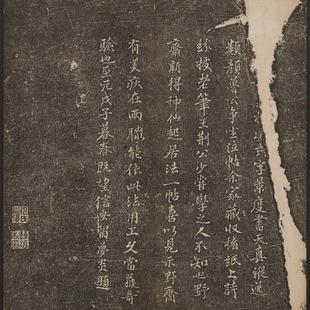 式字景度書天真縱逸
類顏魯公爭坐位帖余家藏收楮紙上詩
老筆王荊公少嘗學之人不知也野
齋新得神仙起居法一帖喜以見示野齋
有美疾在兩臁能依此法用工久當獲奇
驗也至元戊子暮春既望信安留夢炎題